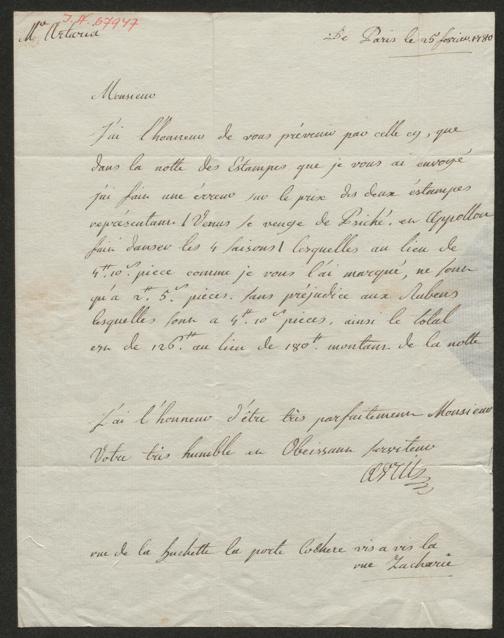 J.N. 67947
Mr Artaria
De Paris le 25 fevrier 1780
Monsieur
J'ai l'honneur de vous prévenir par celle cy, que
dans la notte des Estampes que je vous ai envoyé
j'ai fait une érreur sur le prix des deux éstampes
représentant (Venus se venge de Psiché, et Appollon
fait danser les 4 saisons) lesquelles au lieu de
4tt 10s piece comme je vous l'ai marqué, ne sont
qu'a 2tt 5s pieces. sans préjudice aux Rubens
lesquelles sont a 4tt 10s pieces, ainsi le total
est de 126tt au lieu de 180tt montant de la notte
J'ai l'honneur d'être très parfaitement Monsieur
Votre très humble et Obeissant serviteur
rue de la huchette la porte Cochere vis a vis la
rue Zacharie